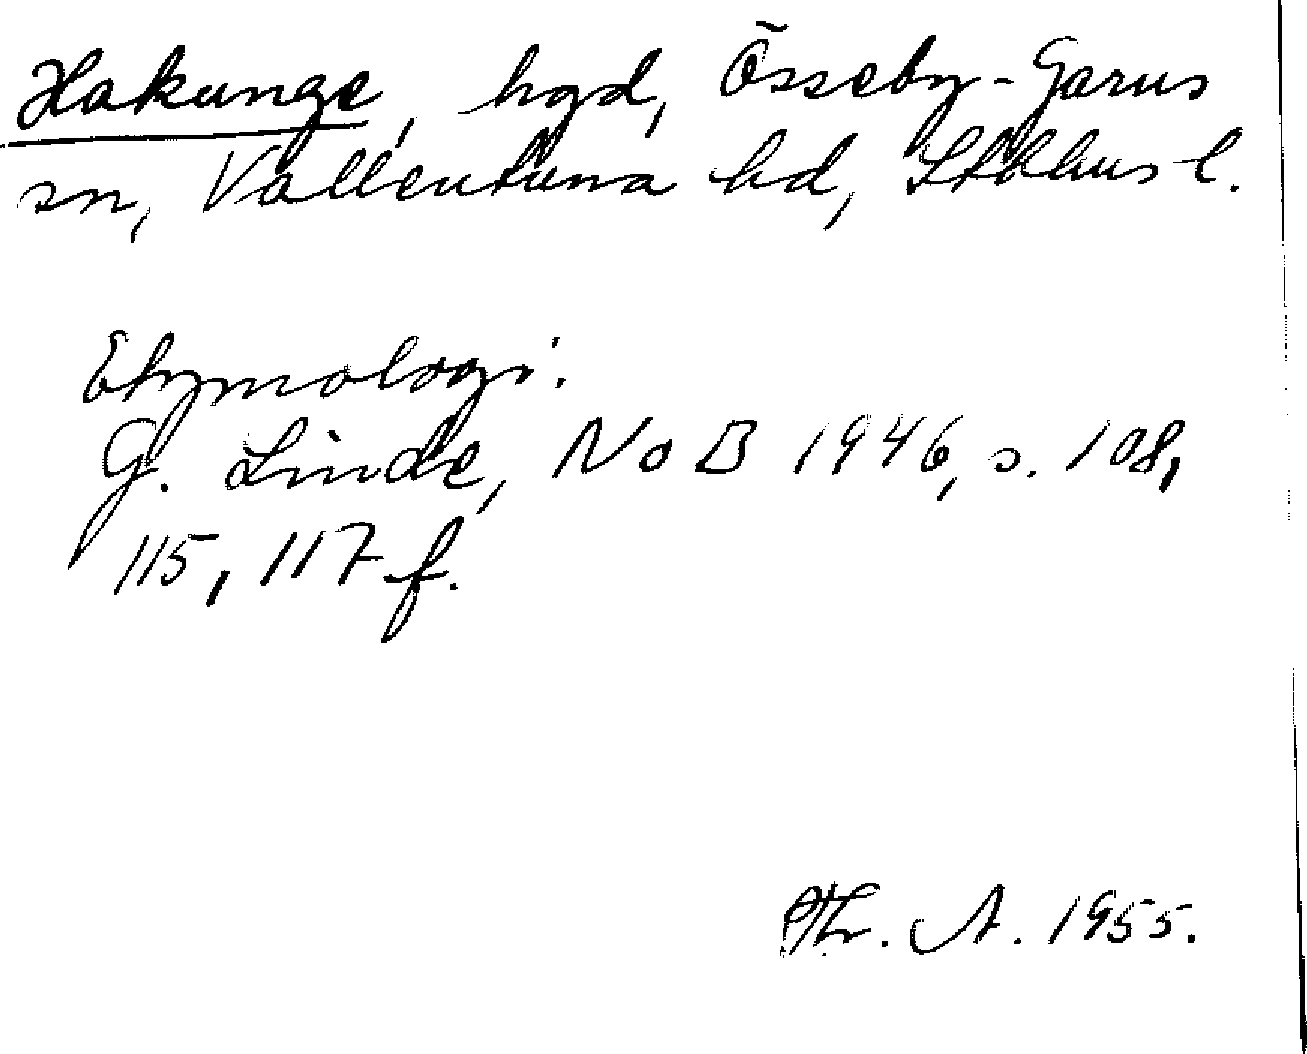 Hakunge, hgd, Össeby-Garns
sn, Vallentuna hd, Sthlms l.
Etymologi:
G. Linde, NoB 1946, s. 108,
115, 117 f.
Th. A. 1955.